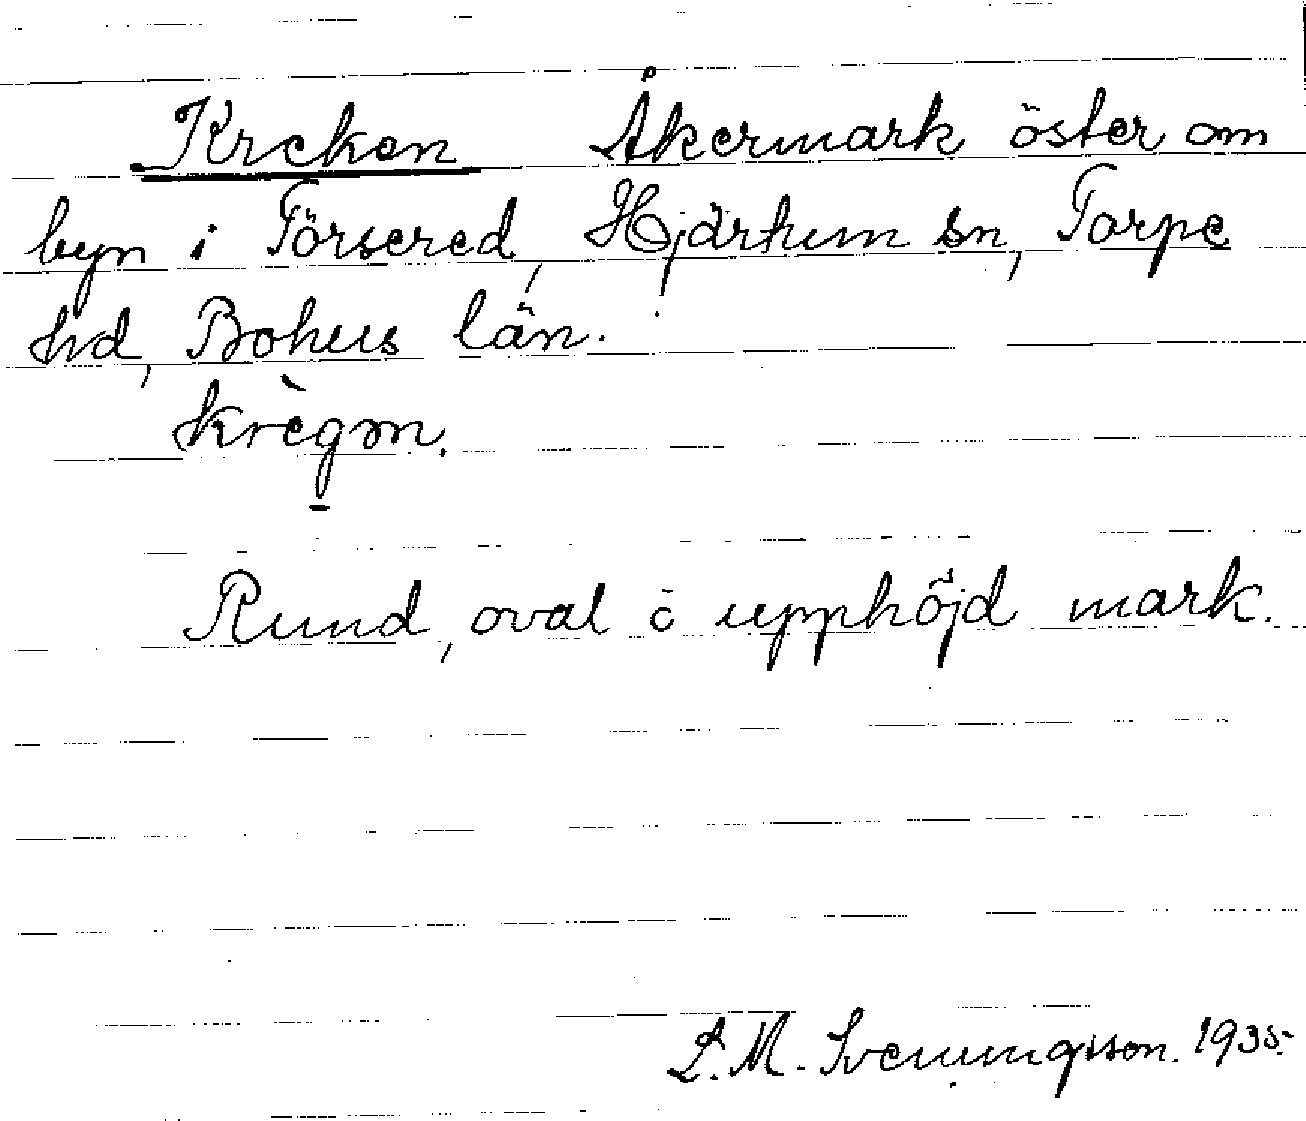 Kreken Åkermark öster om
byn i Försered, Hjärtum sn, Torpe
hd, Bohus län.
krègən.
Rund, oval o upphöjd mark.
L. M. Svenungsson. 1935.